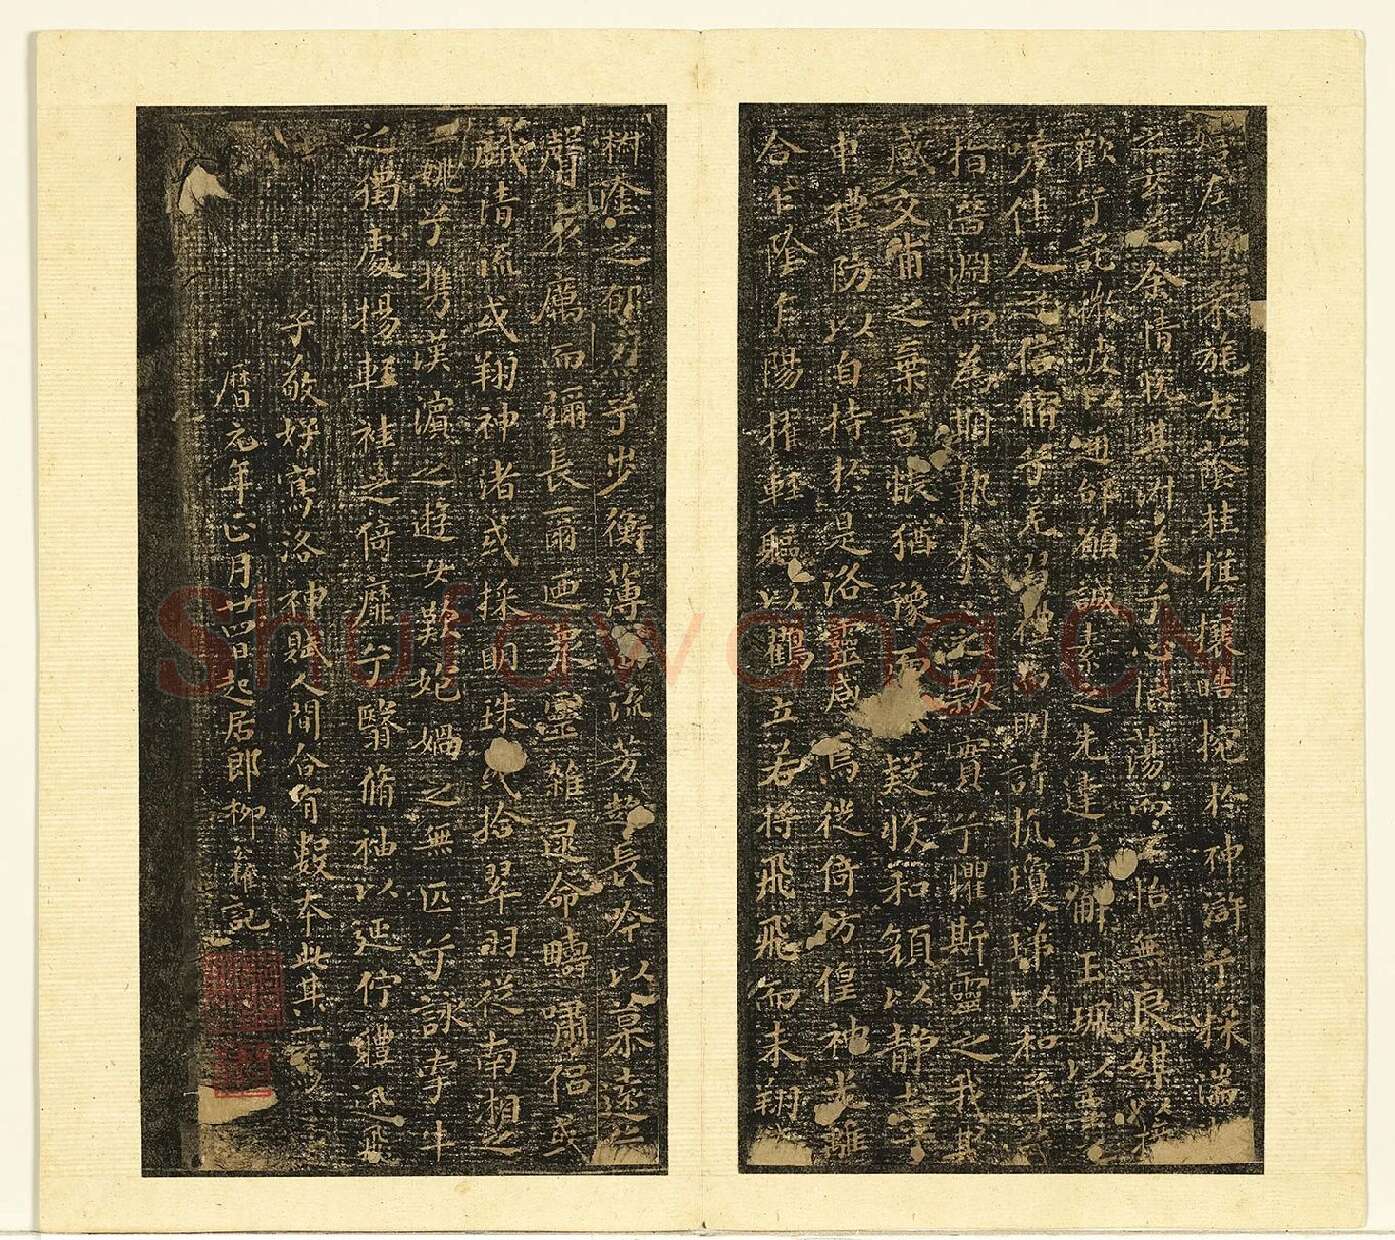 左倚采旄右蔭桂旗攘皓捥於神滸兮採湍
之玄芝余情悅其淑美兮心振蕩而不怡無良媒以接
歡兮託微波以通辭願誠素之先達兮解玉珮以要之
嗟佳人之信脩兮羌習禮而明詩抗瓊珶以和予兮
指潛淵而為期執眷之款實兮懼斯靈之我欺
感交甫之棄言悵猶豫而狐疑收和顏以靜志
申禮防以自持於是洛靈感焉從倚彷徨神光離
合乍陰乍陽擢輕軀以鶴立若將飛飛而未翔
塗之郁烈兮步衡薄而流芳超長吟以慕遠
厲而彌長爾迺眾靈雜遝命疇嘯侶或
戲清流或翔神渚或採明珠或拾翠羽從南湘之
二姚兮攜漢濱之遊女歎匏媧之無匹兮詠牽牛
之獨處揚輕袿之倚靡兮翳脩袖以延佇體迅飛
子敬好寫洛神賦人間合有數本此其一焉
曆元年正月廿四日起居郎柳公權記
Shufawang.CN